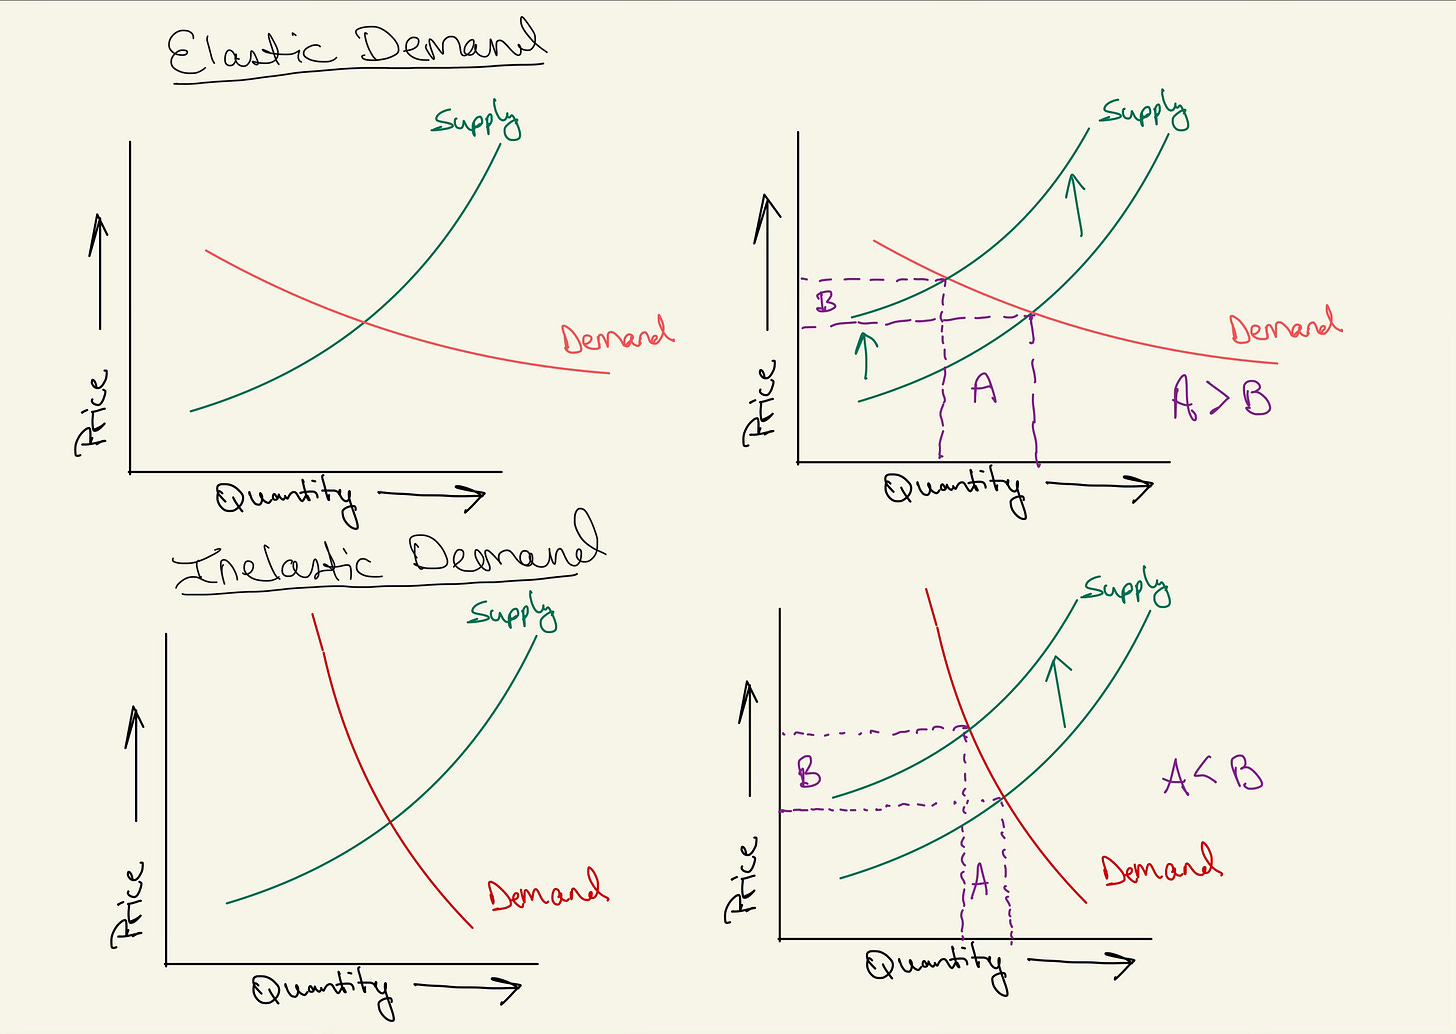 Elastic Demand
Supply
Demand
Price
Quantity
Supply
B
Demand
A
A > B
Price
Quantity
Inelastic Demand
Supply
Demand
Price
Quantity
Supply
B
A < B
A
Demand
Price
Quantity